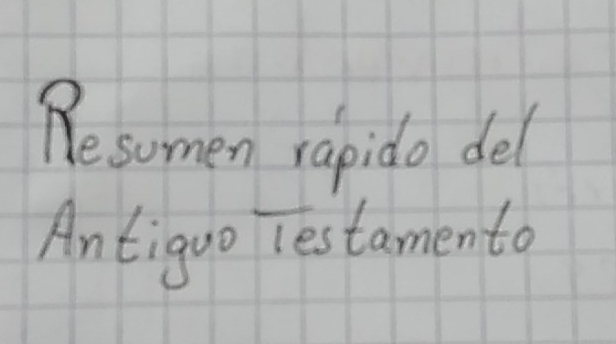 Resumen rápido del
Antiguo Testamento